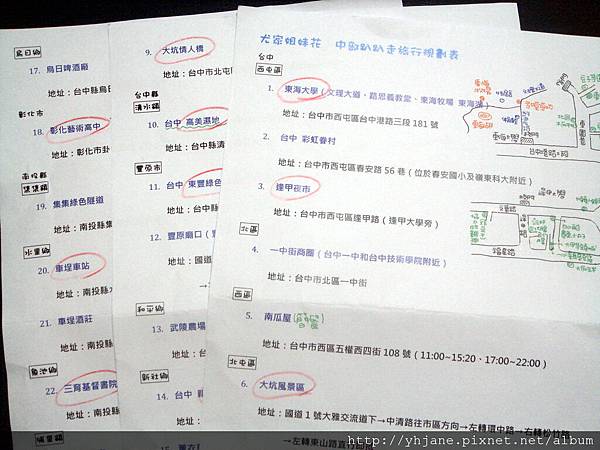 烏日鄉
17. 烏日啤酒廠
地址:台中縣烏日
彰化市
18. 彰化藝術高中
地址:彰化市卦
南投縣
集集鎮
19. 集集綠色隧道
地址:南投縣集
水里鄉
20. 車埕車站
地址:南投縣水
21. 車埕酒莊
地址:南投縣
魚池鄉
22. 三育基督書院
地址:南投縣魚
埔里鎮
9. 大坑情人橋
地址:台中市北屯區
台中縣
清水鎮
10. 台中 高美濕地
地址:台中縣清
豐原市
11. 台中 東豐綠色
地址:台中縣
12. 豐原廟口(豐
地址:國道
13. 武陵農場
地址:台中縣
新社鄉
14. 台中
地址:台中縣
15. 薰衣
犬家姐妹花 中彰趴趴走旅行規劃表
台中
西屯區
1. 東海大學(文理大道、路思義教堂、東海牧場 東海湖)
地址:台中市西屯區台中港路三段 181 號
2. 台中 彩虹眷村
地址:台中市西屯區春安路 56 巷(位於春安國小及嶺東科大附近)
3. 逢甲夜市
地址:台中市西屯區逢甲路(逢甲大學旁)
北區
4. 一中街商圈(台中一中和台中技術學院附近)
地址:台中市北區一中街
西區
5. 南瓜屋
地址:台中市西區五權西四街 108 號(11:00~15:20、17:00~22:00)
北屯區
6. 大坑風景區
地址:國道 1 號大雅交流道下→中清路往市區方向→左轉環中路→右轉松竹路
→左轉東山路直行即抵
台中港路
文華路
福星路
http://yhjane.pixnet.net/album